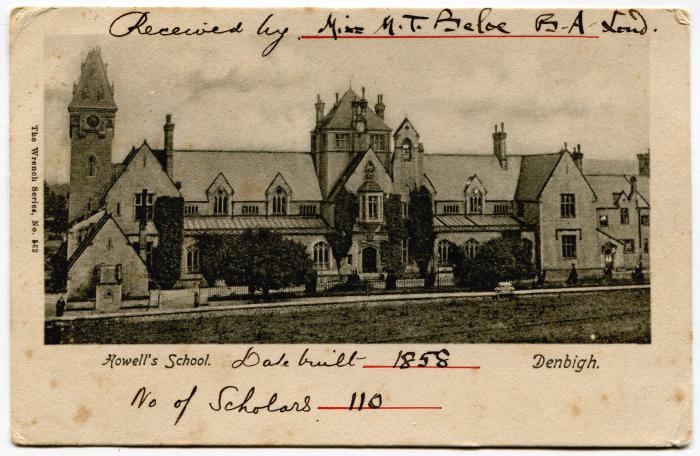 Received by Miss M.T. Beloe B-A Lond.
The Wrench Series, No. 562
Howell's School. Date built 1858 Denbigh.
No of Scholars 110